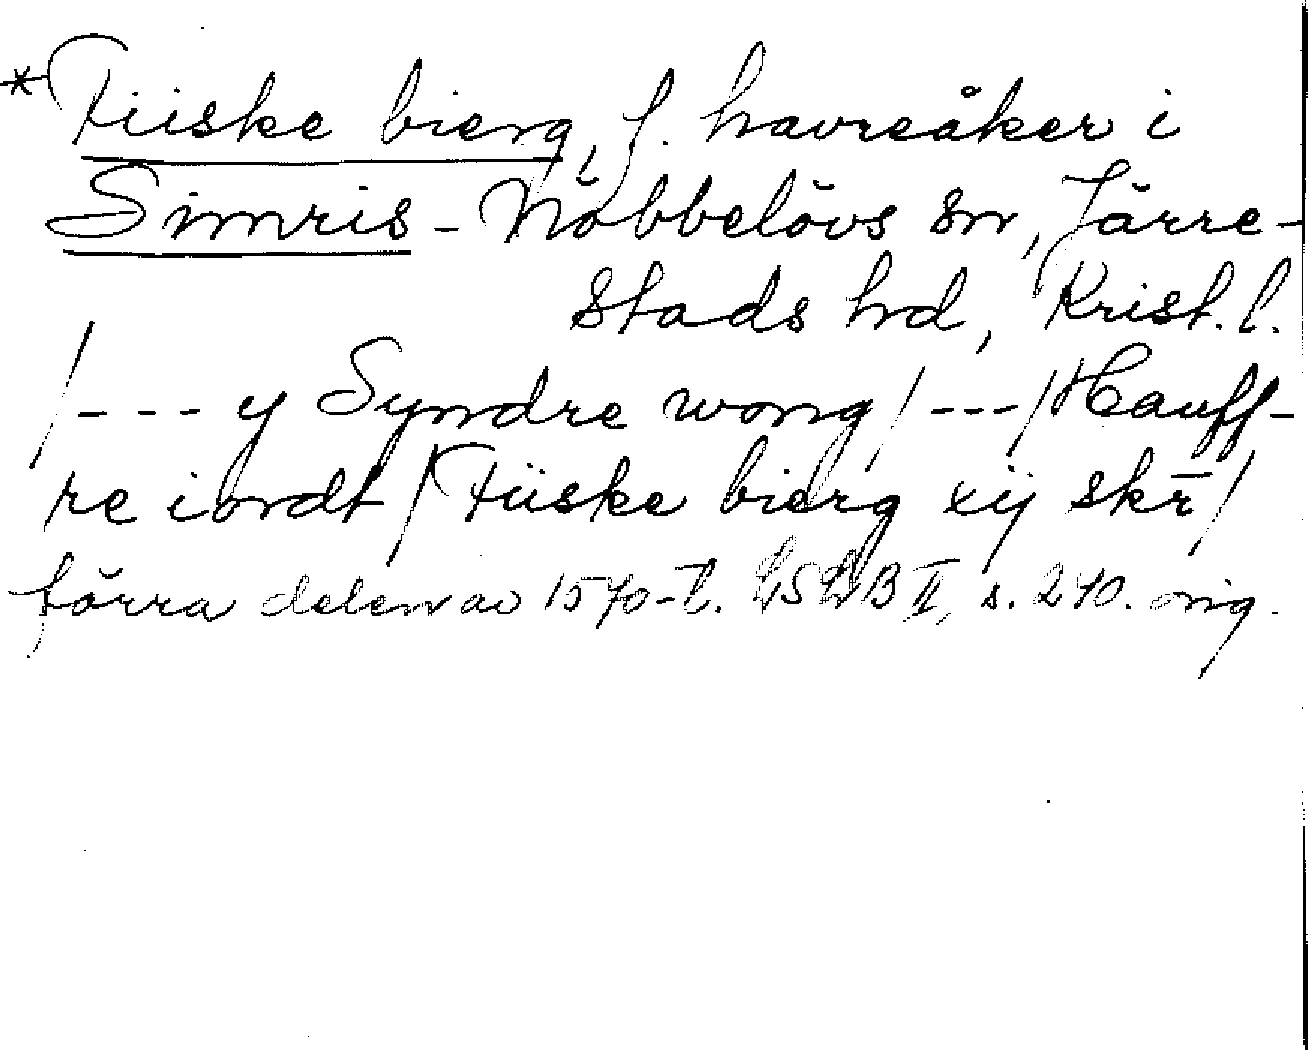 *Tüske bierg, f. havreåker i
Simris-Nöbbelövs sn, Järre-
stads hd, Krist. l.
/--- y Syndre wong/---/Hauff-
re iordt/Tüske bierg xij skr̄/
förra delen av 1570-t. LSLB II, s. 240. orig.